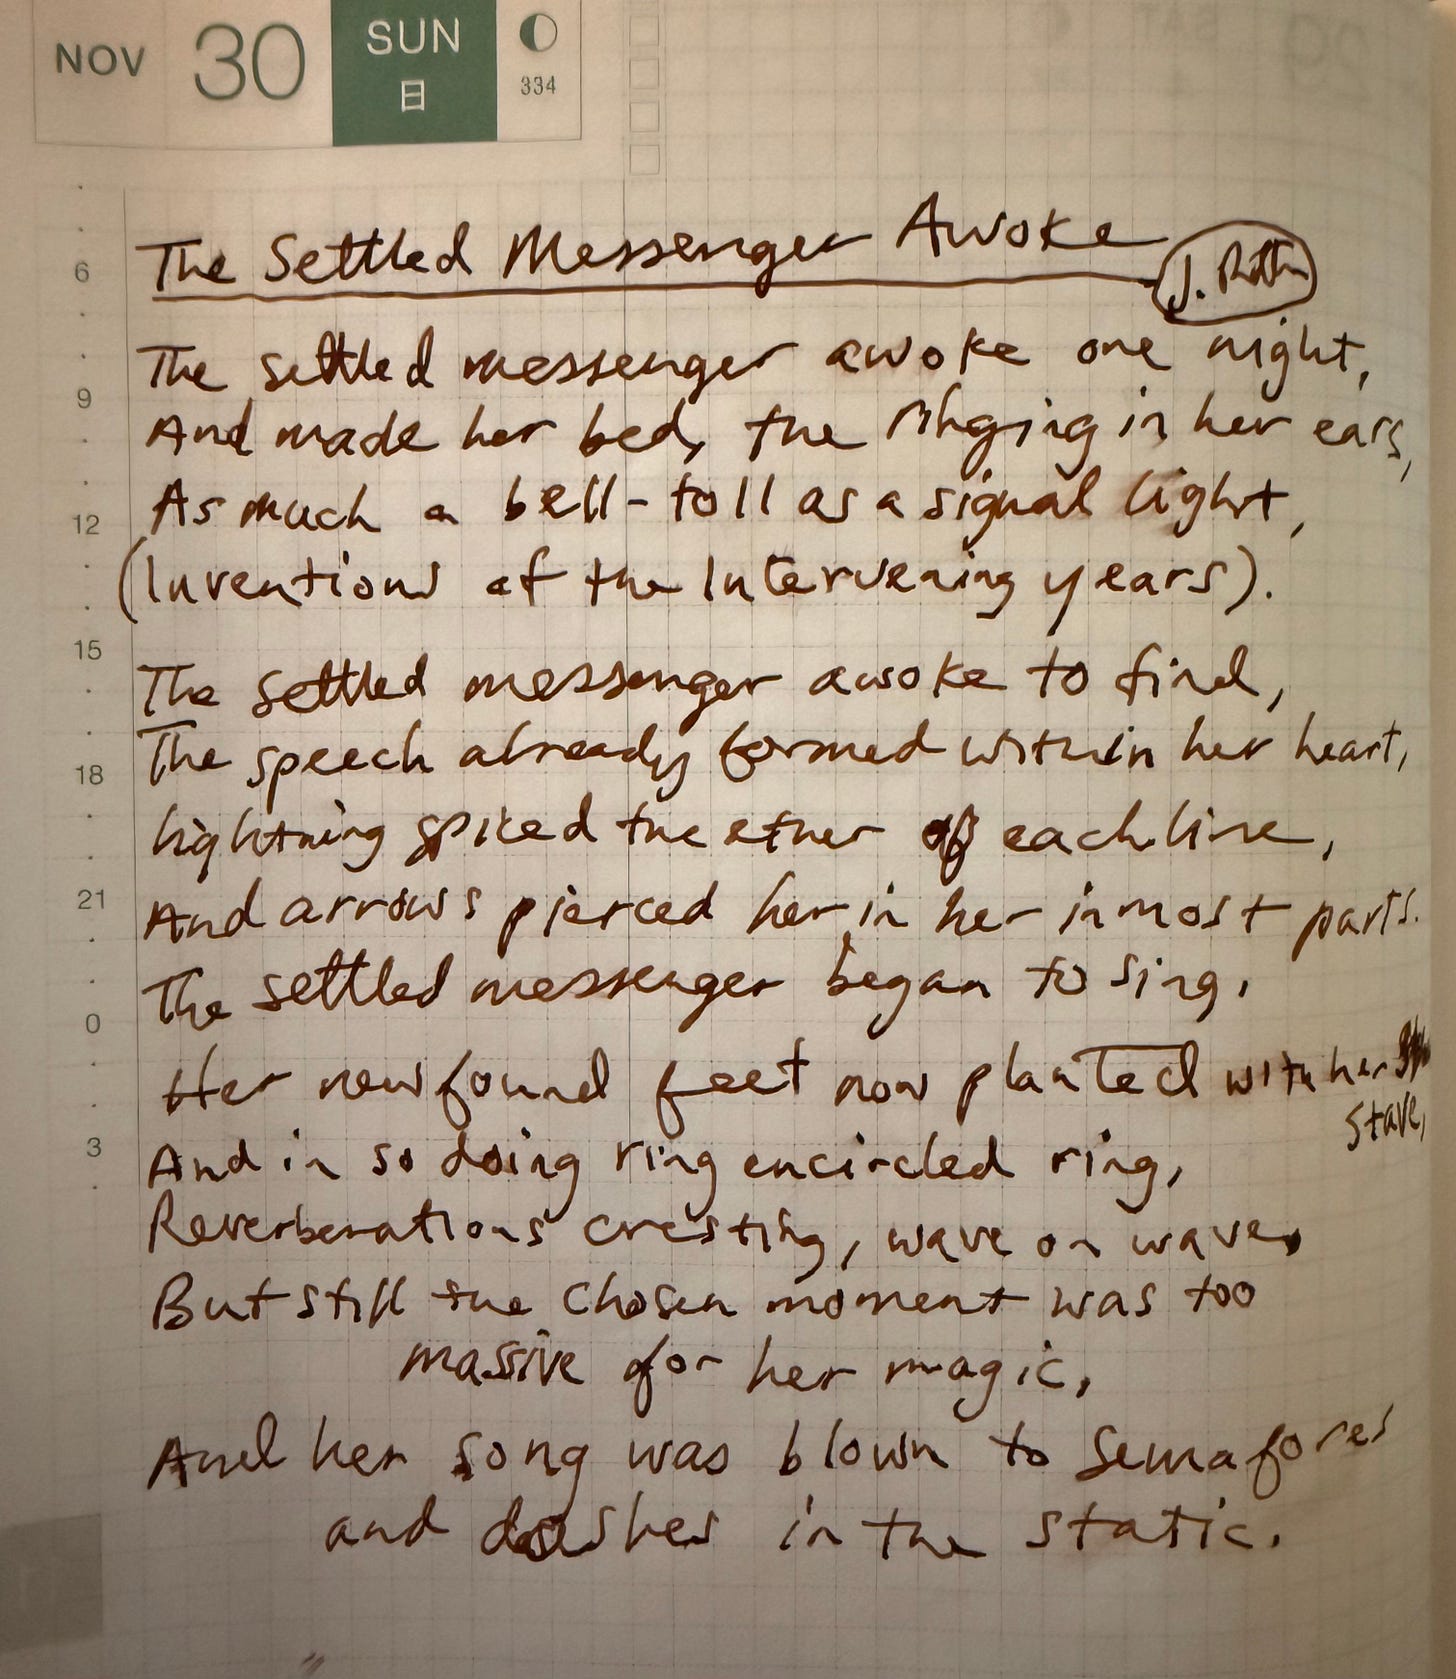 NOV 30 SUN 日 334
The Settled Messenger Awoke
J.
6
The settled messenger awoke one night,
9
And made her bed, the ringing in her ears,
As much a bell-toll as a signal light,
12
(Inventions of the Intervening years).
15
The settled messenger awoke to find,
The speech already formed within her heart,
18
lightning spiked the ether of each line,
21
And arrows pierced her in her inmost parts.
The settled messenger began to sing,
0
Her newfound feet now planted with her
stave,
3
And in so doing ring encircled ring,
Reverberations cresting, wave on wave,
But still the chosen moment was too
massive for her magic,
And her song was blown to semafores
and dashes in the static.